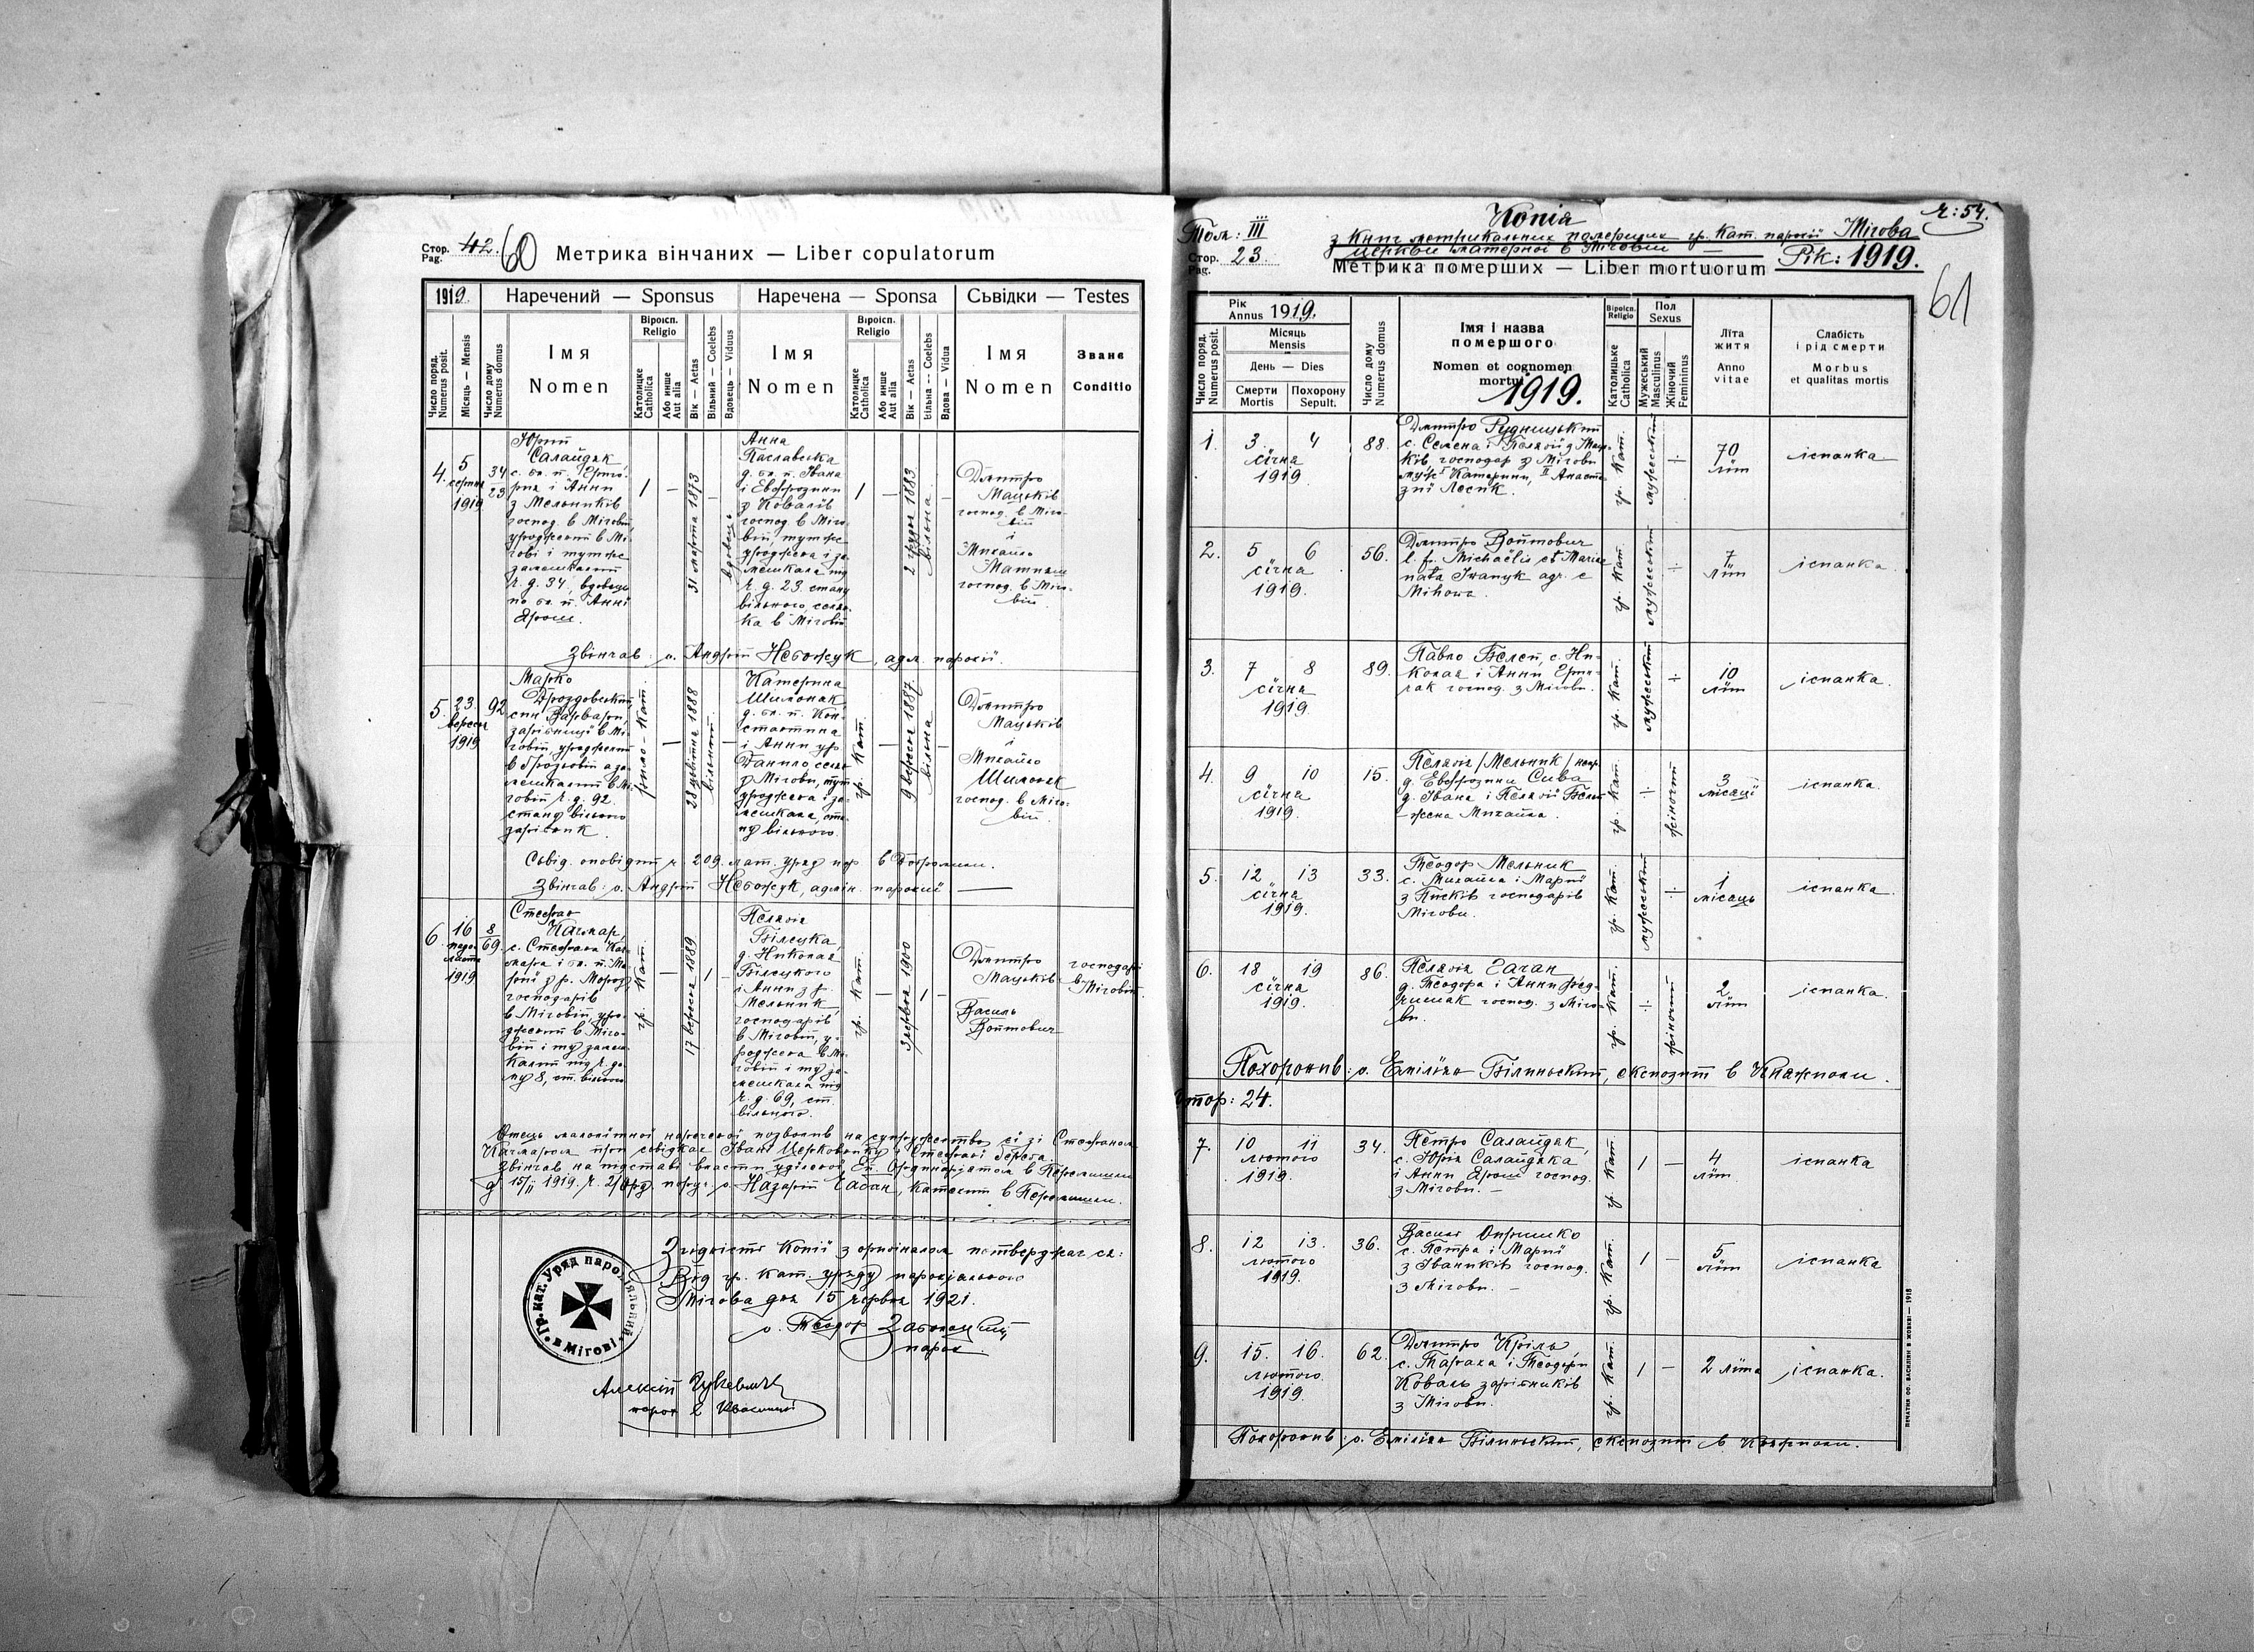 Стор. 42. 60 Метрика вінчаних — Liber copulatorum
Pag.
1919. Наречений — Sponsus Наречена — Sponsa Сьвідки — Testes
Число поряд. Numerus posit.
Місяць — Mensis
Число дому Numerus domus
Імя Nomen
Віроісп. Religio
Католицке Catholica
Або инше Aut alia
Вік — Aetas
Вільний — Coelebs
Вдовець — Viduus
Імя Nomen
Віроісп. Religio
Католицке Catholica
Або инше Aut alia
Вік — Aetas
Вільна — Coelebs
Вдова — Vidua
Імя Nomen
Званє Conditio
4. 5 серпня 1919
34
23
Юрий
Салайдяк
с. бл. п. Григо-
рия і Анни
з Мельників
господ. в Міговій
уроджений в Мі-
гові і тутже
замешкалий
ч. д. 34, вдовець
по бл. п. Анні
Ярош.
/ —
31 марта 1873
— вдовець
Анна
Паславска
д. бл. п. Івана
і Евфрозини
з Ковалів
господ. в Міго-
вій, тутже
уроджена і за-
мешкала під
ч. д. 23. стану
вільного, селян-
ка в Міговій
/ —
2 грудня 1883
вільна —
Дмитро
Мацьків
господ. в Міго-
вій
і
Михайло
господ. в Міго-
вій.
Звінчав: о. Андрій Небожук, адм. парохії.
5. 23. вересня 1919
92
Марко
Дроздовський
син Варвари,
зарібниці в Мі-
говій уроджений
замешкалий в Мі-
говій ч. д. 92.
стану вільного
зарібник.
римо-кат.
—
28 цьвітня 1888
вільний. —
Катерина
Шимоняк,
д. бл. п. Кон-
стантина
і Анни ур.
Данило селян
з Мігови, тут
уроджена і за-
мешкала, ста-
ну вільного.
гр. кат.
—
9 вересня 1887.
вільна —
Дмитро
Мацьків
і
Михайло
Шимоняк
господ. в Міго-
вій.
Сьвід. оповідий ч. 209. лат. уряд пар. в Добромили.
Звінчав: о. Андрій Небожук, адмін. парохії —
6. 16 падолиста 1919
8
69.
Стефан
Качмар,
с. Стефана Кач-
мара і бл. п. Ма-
рії з р. Мороз
господарів
в Міговій, уро-
джений в Міго-
вій і ту замеш-
калий під ч. до-
му 8, ст. вільного
гр. кат.
—
17 вересня 1889
/ —
Пелагія
Білецка,
д. Николая
Білецкого
і Анни з р.
Мельник
господарів
в Міговій, у-
роджена в Мі-
говій і ту за-
мешкала під
ч. д. 69, ст.
вільного.
гр. кат.
—
3 червня 1900
/ —
Дмитро
Мацьків
Василь
Войтович
господарі
в
Міговій.
Отець малолітної нареченої позволив на супружество єї зі Стефаном
Качмаром при сьвідках Івані Церковнику і Стефані
Звінчав на підставі власти уділеної Еп. Ординаріятом в Перемишли
д. 15/II 1919. ч. 2/орд. о. Назарій Гадан, катехит в Перемишли.
Згідність копії з оригіналом потверджає ся:
Від гр. кат. уряду парохіяльного
Мігова дня 15 червня 1921.
о. Теодор
парох.
Гр. кат. Уряд парохіяльний в Мігові
Алексій
парох в
Копія ч: 54.
Том: III з книг метрикальних померших гр. кат. парохії Мігова
церкви матерної в Міговій —
Стор. 23. Метрика померших — Liber mortuorum Рік: 1919.
Pag.
61
Число поряд. Numerus posit.
Рік Annus 1919.
Місяць Mensis
День — Dies
Смерти Mortis
Похорону Sepult.
Число дому Numerus domus
Імя і назва помершого
Nomen et cognomen mortui
1919.
Віроісп. Religio
Католицьке Catholica
Пол Sexus
Мужеський Masculinus
Жіночий Femininus
Літа житя Anno vitae
Слабість і рід смерти
Morbus et qualitas mortis
1. 3. 4 січня 1919 88.
Дмитро Рудницький
с. Семена і Пелагії з Маць-
ків господар з Мігови
муж I Катерини, II Анаста-
зиї Лесик.
гр. кат. мужеський ÷ 70 літ іспанка
2. 5 6 січня 1919. 56.
Дмитро Войтович
l. f. Michaëlis et Mariae
nata Iwanyk agr. e
Mihowa.
гр. кат. мужеський ÷ 7 літ іспанка.
3. 7 8 січня 1919 89.
Павло Белей, с. Ни-
колая і Анни
господ. з Мігови.
гр. кат. мужеський ÷ 10 літ іспанка.
4. 9 10 січня 1919. 15.
Пелагія /Мельник/
д. Евфрозини Сива
д. Івана і Пелагії Белей
жена Михайла.
гр. кат. ÷ жіночий 3 місяці іспанка.
5. 12 13 січня 1919. 33.
Теодор Мельник
с. Михайла і Марії
з Писків господарів
Мігови.
гр. кат. мужеський ÷ 1 місяць іспанка.
6. 18 19 січня 1919. 86.
Пелагія Гачан
д. Теодора і Анни Фед-
чишак господ. з Міго-
ви.
гр. кат. ÷ жіночий 2 літ іспанка.
Похоронив: о. Еміліян Білиньский, експозит в Княжполи.
Стор: 24.
7. 10 11 лютого 1919. 34.
Петро Салайдяк,
с. Юрія Салайдяка
і Анни Ярош господ.
з Мігови. —
гр. кат. / — 4 літ. іспанка
8. 12 13. лютого 1919. 36.
Василь Опришко
с. Петра і Марії
з Іваників господ.
з Мігови. —
гр. кат. / — 5 літ іспанка
9. 15. 16. лютого 1919. 62.
Дмитро Кріль,
с. Тараха і Теодори
Коваль зарібників
з Мігови.
гр. кат. / — 2 літа іспанка.
Похоронив: о. Еміліян Білиньский, експозит в Княжполи.
ПЕЧАТНЯ ОО. ВАСИЛІЯН В ЖОВКВІ — 1918